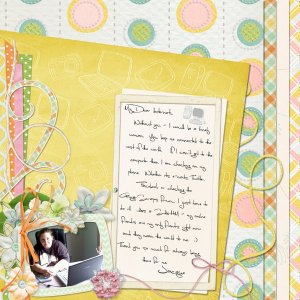 My Dear Internet,
Without you - I would be a lonely
woman. You keep me connected to the
rest of the world. If I can't get to the
computer then I am checking my
phone. Whether it's emails, Twitter,
Facebook or checking the
Scraps forum I just have to
do it. I have my online
friends are my only friends right now
and they mean the world to me :)
Thank you so much for always being
there for me